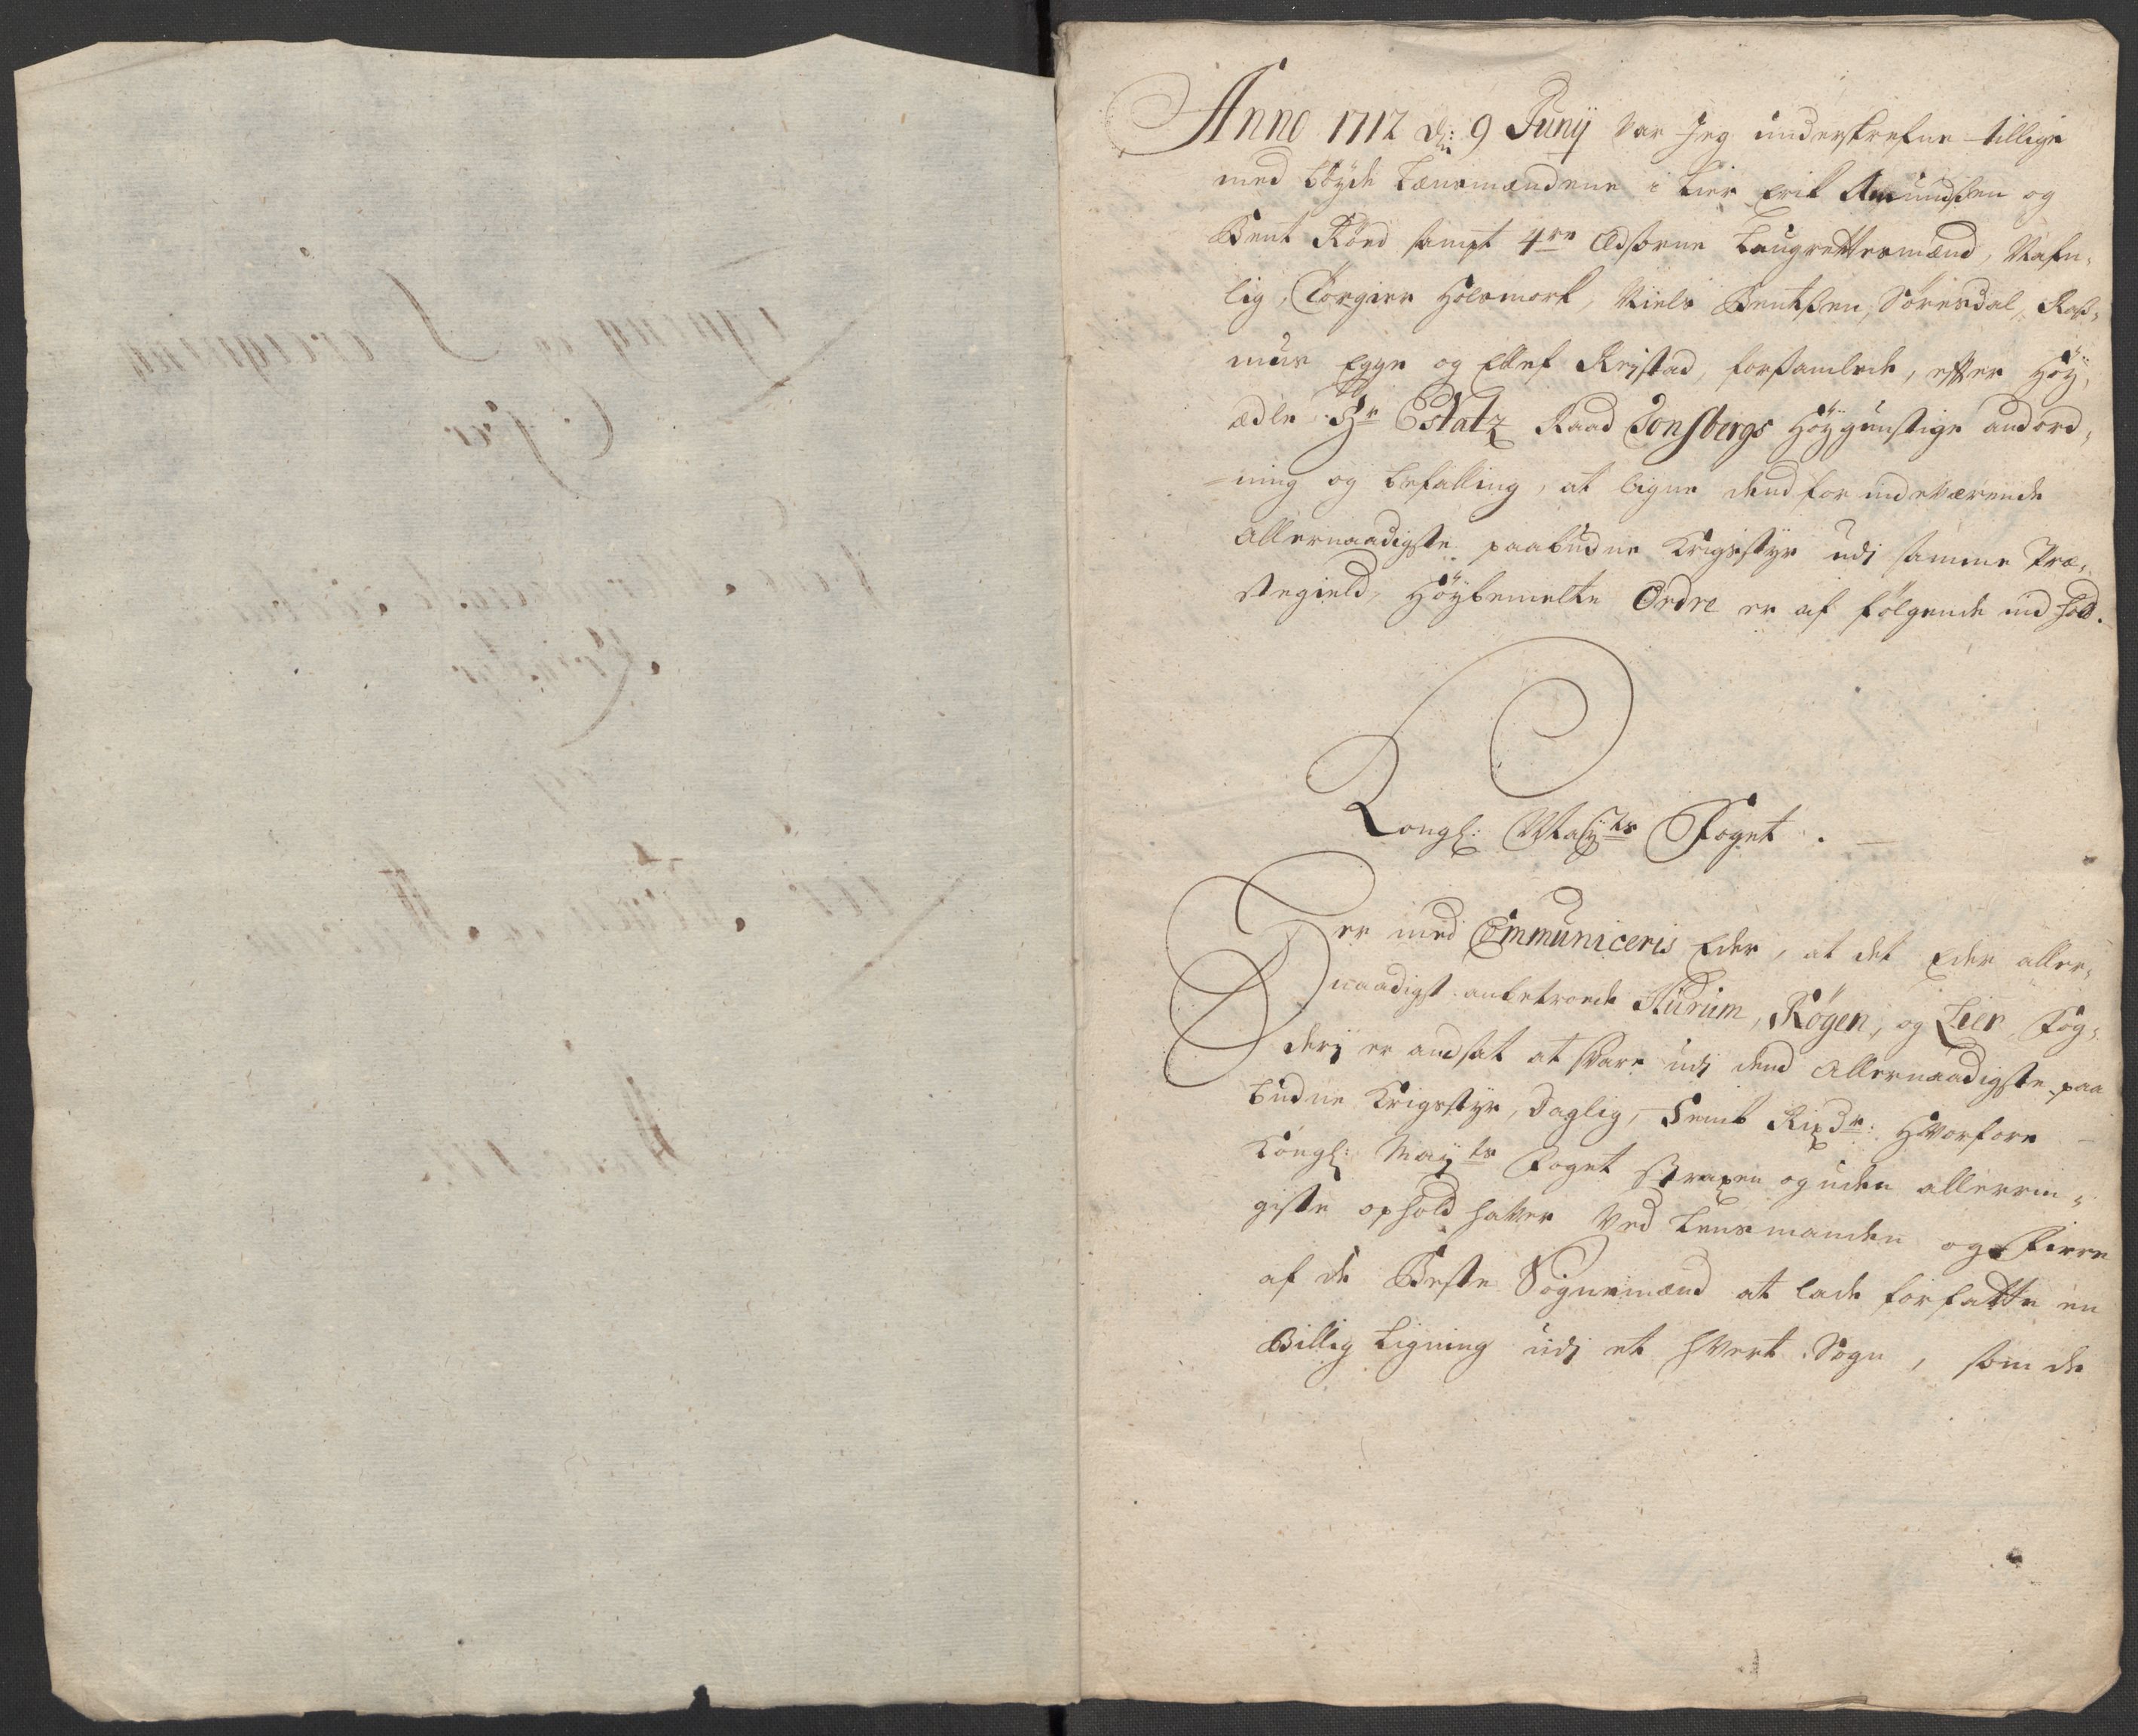 Anno 1712 d: 9 Junij var Jeg underskrefne tillige
med böyde Lænsmændene i Lier Erik Amundsen og
Bent Röed sampt 4re Edsorne Laugrettesmænd, Nafn,
lig, Torgier Holsmork, Niels Bentsen, Sörésdal, Raß,
mus Egge og Ellef Reistad, forsamlede, efter Höÿ,
ædle Hr Estatz Raad Tonsbergs Höÿgunstige andord,
ning og befalling, at ligne dend for indeværende
allernaadigste paabudne Krigsstyr udj samme Præ,
stegield, Höÿbemelte Ordre er af fölgende indhold.
Kongl: Maÿts Foget.
Her med Communiceris Eder, at det Eder aller,
naadigst anbetroede Hurum, Röÿgen, og Lier Fog,
derj er andsat at svare udj dend Allernaadigste paa
budne Krigsstyr, Daglig, Femb Rixdr: Hvorfore
Kongl: Maÿts Foget Straxen og uden allerrin,
giste ophold hafver ved Lensmanden og Fiire
af de Beste Sognemænd at lade forfatte en
Billig Ligning udj et hvert Sogn, som de